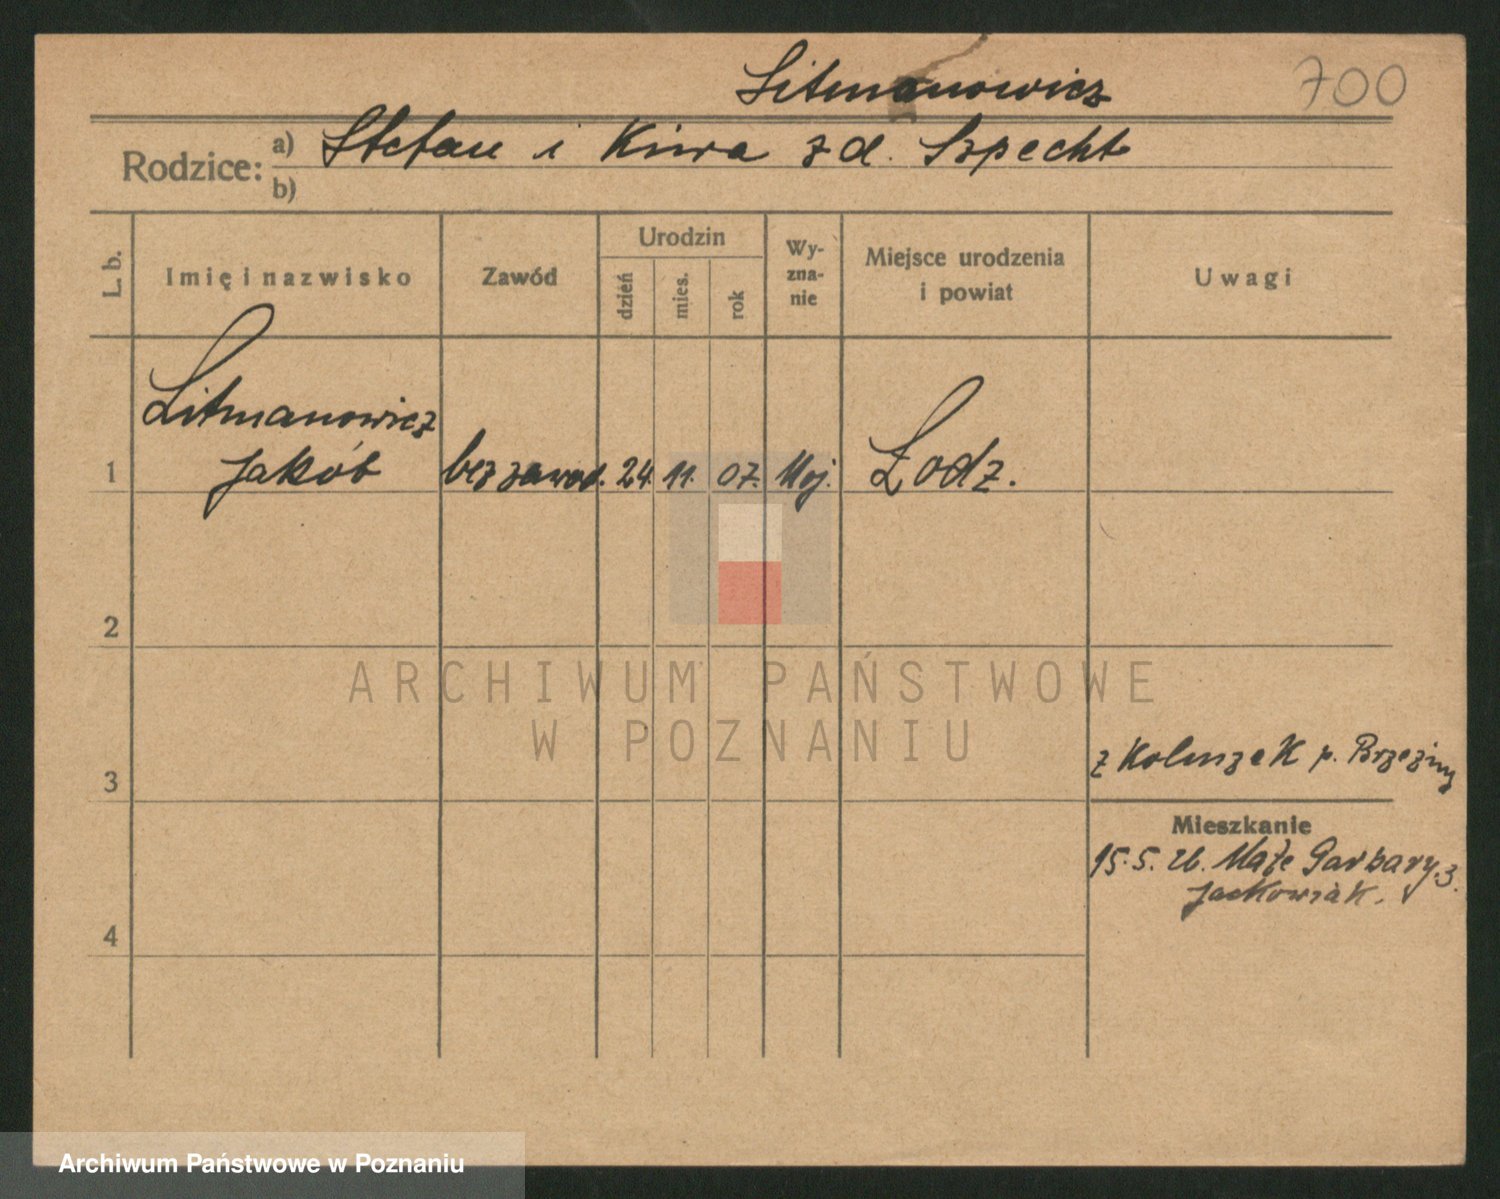 Litmanowicz
700
Rodzice: a) Stefan i Kiwa z d. Szpecht
b)
L. b.
Imię i nazwisko
Zawód
Urodzin
dzień
mies.
rok
Wy-
zna-
nie
Miejsce urodzenia
i powiat
Uwagi
Litmanowicz
1 Jakób bez zawod. 24. 11. 07. Moj. Łodz.
2
ARCHIWUM PAŃSTWOWE
W POZNANIU
3
z Koluszek p. Brzeziny
Mieszkanie
15.5.26. Małe Garbary 3.
Jackowiak.
4
Archiwum Państwowe w Poznaniu